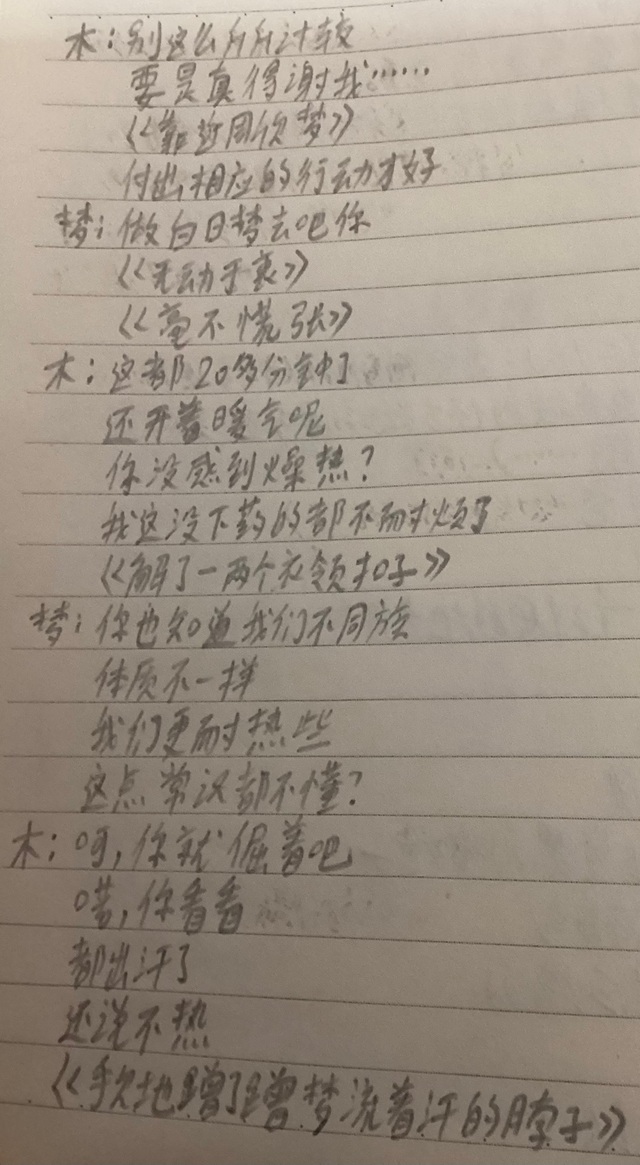 木：别这么斤斤计较
要是真得谢我……
《靠近同欣梦》
付出相应的行动才好
梦：做白日梦去吧你
《无动于衷》
《毫不慌张》
木：这都20多分钟了
还开着暖气呢
你没感到燥热？
我这没下药的都不耐烦了
《解了一两个衣领扣子》
梦：你也知道我们不同族
体质不一样
我们更耐热些
这点常识都不懂？
木：呵，你就倔着吧
喏，你看看
都出汗了
还说不热
《手欠地蹭了蹭梦流着汗的脖子》